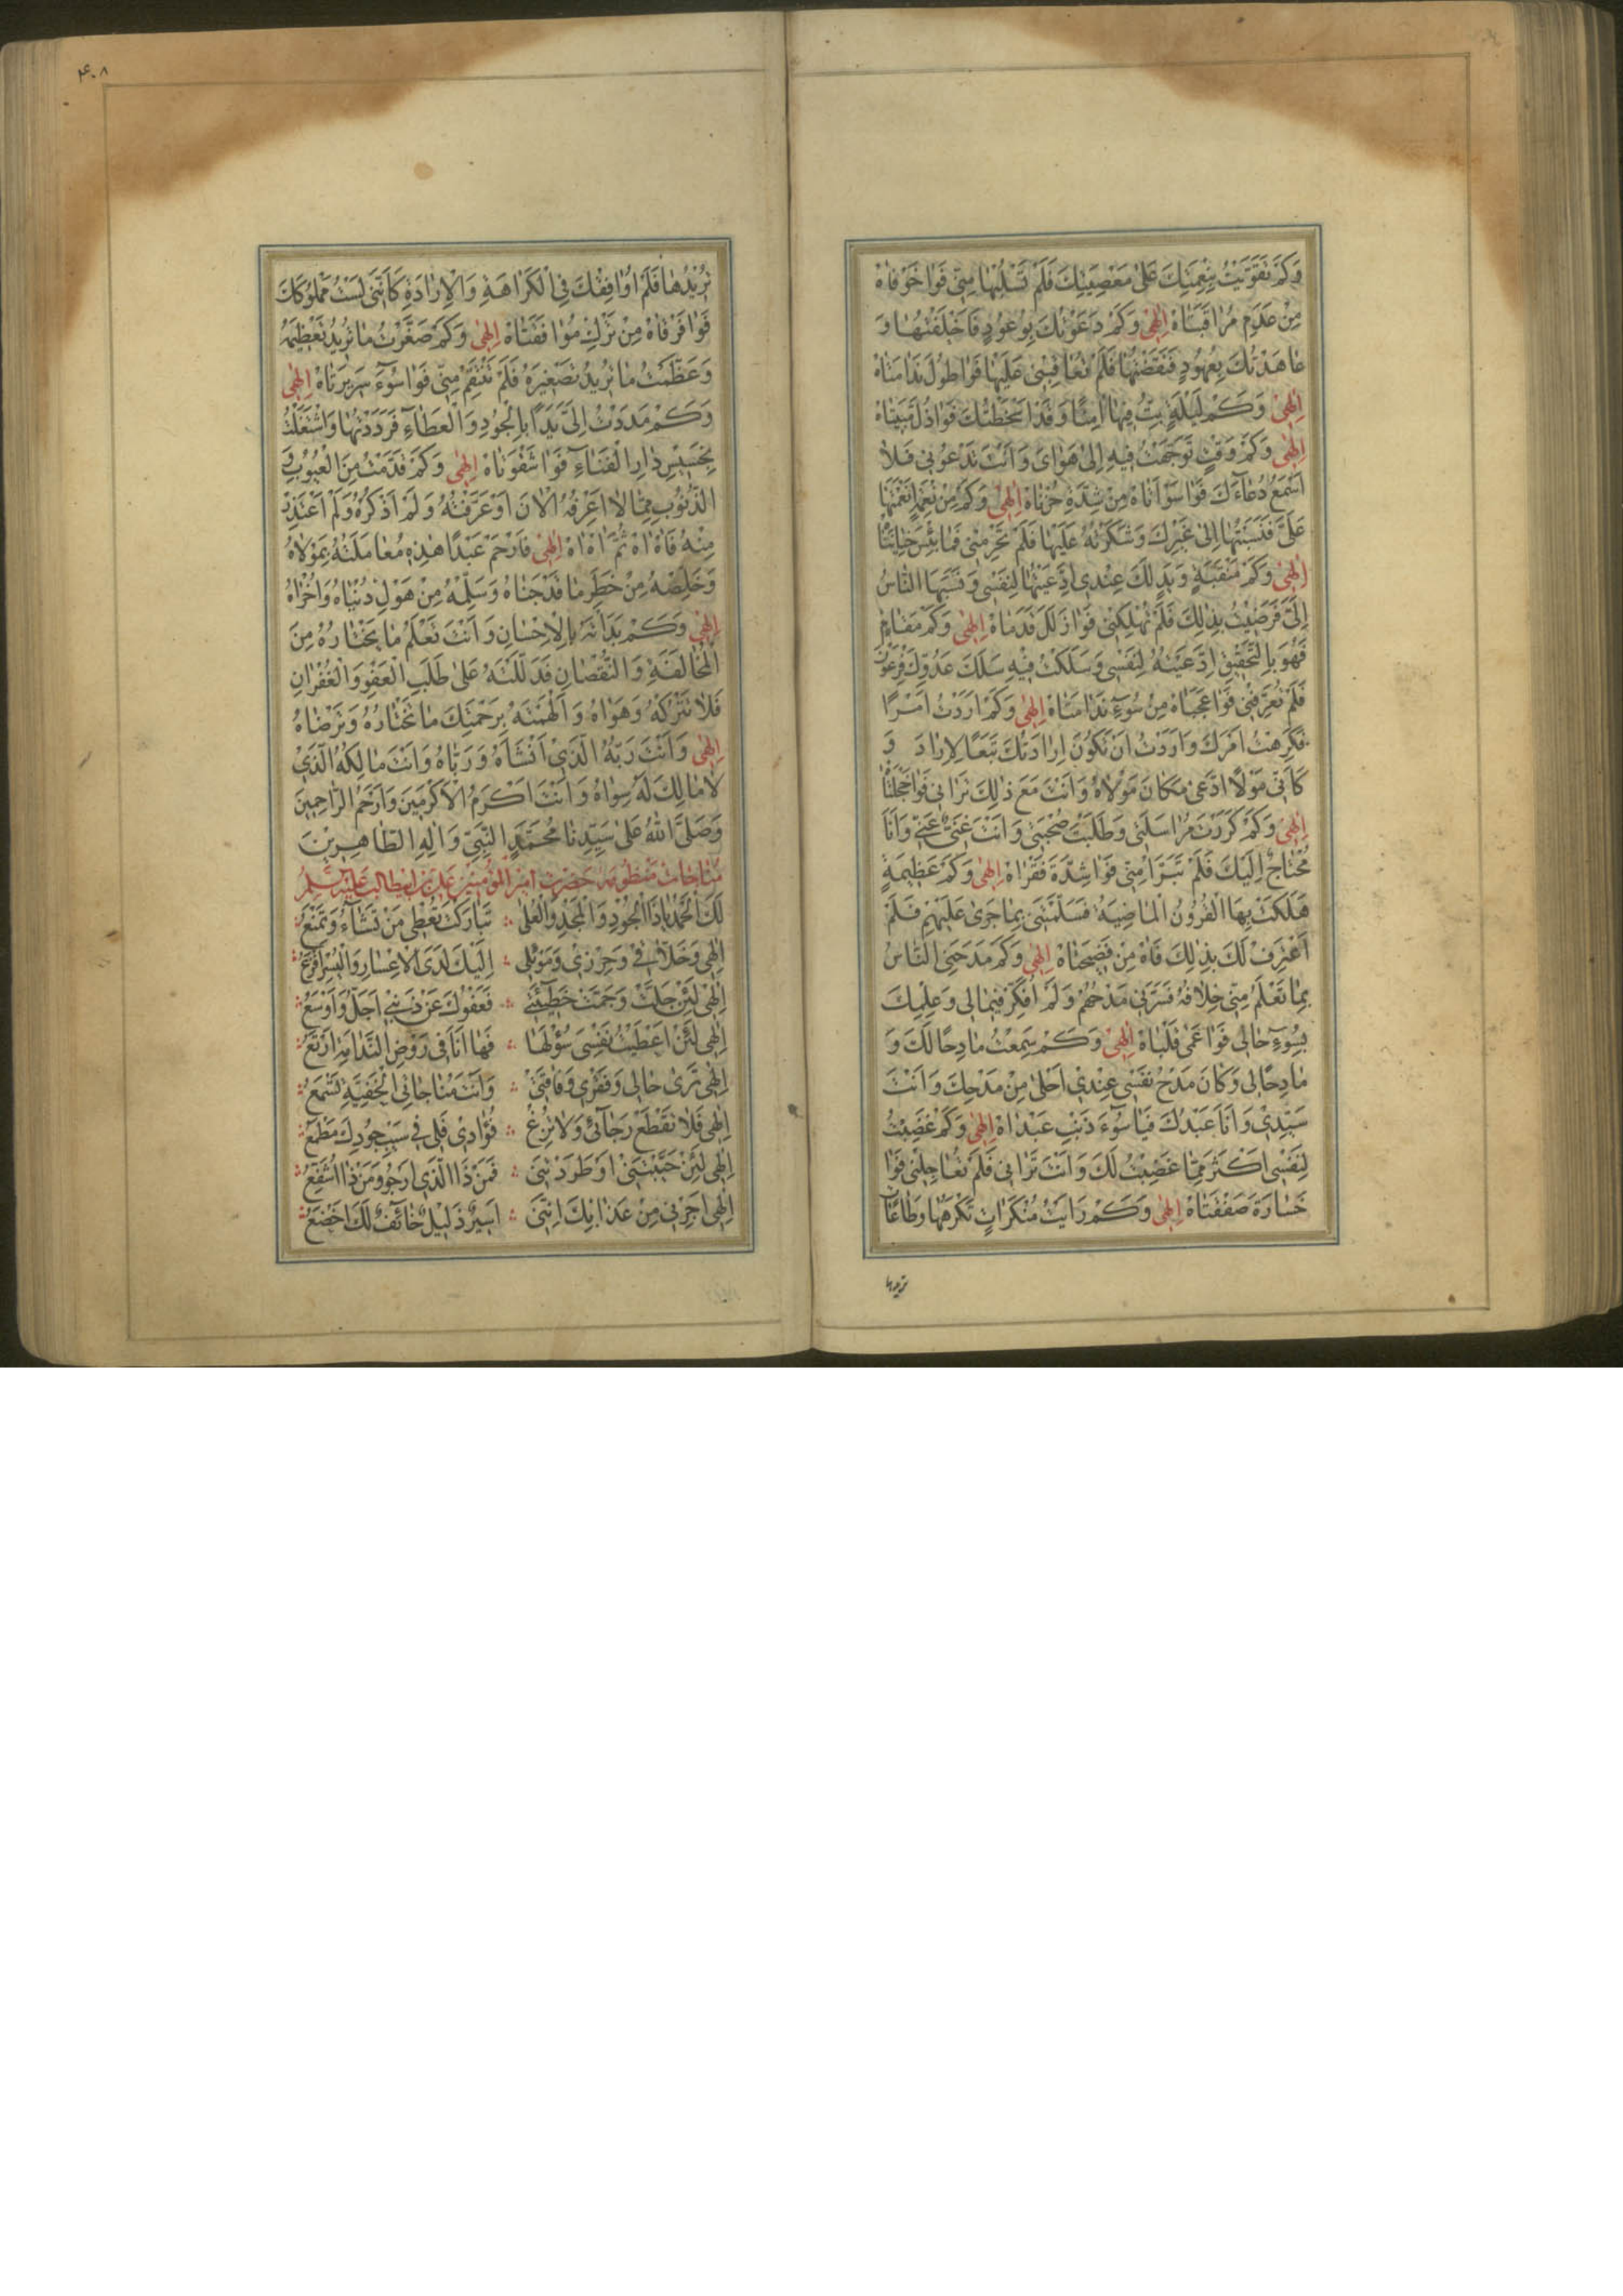 وَكَمْ تَقَوَّيْتُ بِنِعْمَتِكَ عَلىٰ مَعْصِيَتِكَ فَلَمْ تَسْلُبْهٰا مِنّى فَوٰا خَوْفٰاهْ
مِنْ عَدَمِ مُرٰاقَبَتٰاهْ اِلٰهى وَكَمْ دَعَوْتُكَ بِوُعُودٍ فَاَخْلَفْتُهٰا وَ
عٰاهَدْتُكَ بِعُهُودٍ فَنَقَضْتُهٰا فَلَمْ تُعٰاقِبْنى عَلَيْهٰا فَوٰا طُولَ نَدٰامَتٰاهْ
اِلٰهى وَكَمْ لَيْلَةٍ بِتُّ فيهٰا اٰمِنًا وَ قَدْ اَسْخَطْتُكَ فَوٰا ذُلَّ
اِلٰهى وَكَمْ وَقْتٍ تَوَجَّهْتُ فيهِ اِلىٰ هَوٰاىَ وَ اَنْتَ تَدْعُونى فَلاٰ
اَسْمَعُ دُعٰاءَكَ فَوٰا سَوْاَتٰاهْ مِنْ شِدَّةِ حُزْنٰاهْ اِلٰهى وَكَمْ مِنْ نِعْمَةٍ اَنْعَمْتَهٰا
عَلَىَّ فَنَسَبْتُهٰا اِلىٰ غَيْرِكَ وَشَكَرْتُهُ عَلَيْهٰا فَلَمْ تَحْرِمْنى فَيٰا بِئْسَ خِيٰانَتٰا
اِلٰهى وَكَمْ مَنْقَبَةٍ وَ بَذْلٍ لَكَ عِنْدى اِدَّعَيْتُهٰا لِنَفْسى وَ نَسَبَهَا النّٰاسُ
اِلَىَّ فَرَضيتُ بِذٰلِكَ فَلَمْ تُهْلِكْنى فَوٰا زَلَلَ قَدَمٰاهْ اِلٰهى وَكَمْ مَقٰامٍ
فَهُوَ بِالتَّحْقيقِ اِدَّعَيْتُهُ لِنَفْسى وَ سَلَكْتُ فيهِ سَلَكَ عَدُوِّكَ فِرْعَوْنَ
فَلَمْ تُغَرِّقْنى فَوٰا عَجَبٰاهْ مِنْ سُوءِ نَدٰامَتٰاهْ اِلٰهى وَكَمْ اَرَدْتَ اَمْرًا
فَكَرِهْتُ اَمْرَكَ وَ اَرَدْتُ اَنْ تَكُونَ اِرٰادَتُكَ تَبَعًا لِاِرٰادَ
كَاَنّى مَوْلًا ادَّعىٰ مَكٰانَ مَوْلاٰهُ وَ اَنْتَ مَعَ ذٰلِكَ تَرٰانى فَوٰا خَجْلَتٰا
اِلٰهى وَكَمْ كَرَّرْتَ مُرٰاسَلَتى وَ طَلَبْتَ صُحْبَتى وَ اَنْتَ غَنِىٌّ عَنّى وَ اَنَا
مُحْتٰاجٌ اِلَيْكَ فَلَمْ تَبَرَّأْ مِنّى فَوٰا شِدَّةَ فَقْرٰاهْ اِلٰهى وَكَمْ عَظيمَةٍ
هَلَكَتْ بِهَا الْقُرُونُ الْمٰاضِيَةُ فَسَلَّمْتَنى بِمٰا جَرىٰ عَلَيْهِمْ فَلَمْ
اَعْتَرِفْ لَكَ بِذٰلِكَ فَاٰهْ مِنْ فَضيحَتٰاهْ اِلٰهى وَكَمْ مَدَحَنِى النّٰاسُ
بِمٰا تَعْلَمُ مِنّى خِلاٰفَهُ فَسَرَّنى مَدْحُهُمْ وَ لَمْ اُفَكِّرْ فيمٰا لى وَعِلْمِكَ
بِسُوءِ حٰالى فَوٰا عَمىٰ قَلْبٰاهْ اِلٰهى وَكَمْ سَمِعْتُ مٰادِحًا لَكَ وَ
مٰادِحًا لى وَ كٰانَ مَدْحُ نَفْسى عِنْدى اَحْلىٰ مِنْ مَدْحِكَ وَ اَنْتَ
سَيِّدى وَ اَنَا عَبْدُكَ فَيٰا سُوءَ ذَنْبِ عَبْدٰاهْ اِلٰهى وَكَمْ غَضِبْتُ
لِنَفْسى اَكْثَرَ مِمّٰا غَضِبْتُ لَكَ وَ اَنْتَ تَرٰانى فَلَمْ تُعٰاجِلْنى فَوٰا
خَسٰارَةَ صَفْقَتٰاهْ اِلٰهى وَكَمْ رَاَيْتُ مُنْكَرٰاتٍ تَكْرَهُهٰا وَ طٰاعٰاتٍ
تریدها
۴۰۸
تُريدُهٰا فَلَمْ اُوٰافِقْكَ فِى الْكَرٰاهَةِ وَ الْاِرٰادَةِ كَاَنَّنى لَسْتُ مَمْلُوكَكَ
فَوٰا فَرْقٰاهْ مِنْ تَرْكِ مُوٰافَقَتٰاهْ اِلٰهى وَكَمْ صَغَّرْتُ مٰا تُريدُ تَعْظيمَهُ
وَ عَظَّمْتُ مٰا تُريدُ تَصْغيرَهُ فَلَمْ تَنْتَقِمْ مِنّى فَوٰا سُوءَ سَريرَتٰاهْ اِلٰهى
وَكَمْ مَدَدْتَ اِلَىَّ يَدًا بِالْجُودِ وَ الْعَطٰاءِ فَرَدَدْتُهٰا وَ اشْتَغَلْتُ
بِخَسيسِ دٰارِ الْفَنٰاءِ فَوٰا شَقْوَتٰاهْ اِلٰهى وَكَمْ قَدَّمْتُ مِنَ الْعُيُوبِ وَ
الذُّنُوبِ مِمّٰا لاٰ اَعْرِفُهُ الْاٰنَ اَوْ عَرَفْتُهُ وَ لَمْ اَذْكُرْهُ وَ لَمْ اَعْتَذِرْ
مِنْهُ فَاٰهْ اٰهْ ثُمَّ اٰهْ اٰهْ اِلٰهى فَارْحَمْ عَبْدًا هٰذِهِ مُعٰامَلَتُهُ بِمَوْلاٰهُ
وَ خَلِّصْهُ مِنْ خَطَرِ مٰا قَدْ جَنٰاهُ وَ سَلِّمْهُ مِنْ هَوْلِ دُنْيٰاهُ وَ اُخْرٰاهُ
اِلٰهى وَكَمْ بَدَاْتَهُ بِالْاِحْسٰانِ وَ اَنْتَ تَعْلَمُ مٰا يَخْتٰارُهُ مِنَ
الْمُخٰالَفَةِ وَ النُّقْصٰانِ فَدَلَّلْتَهُ عَلىٰ طَلَبِ الْعَفْوِ وَ الْغُفْرٰانِ
فَلاٰ تَتْرُكْهُ وَ هَوٰاهُ وَ اَلْهِمْتَهُ بِرَحْمَتِكَ مٰا تَخْتٰارُهُ وَ تَرْضٰاهُ
اِلٰهى وَ اَنْتَ رَبُّهُ الَّذى اَنْشَاَهُ وَ رَبّٰاهُ وَ اَنْتَ مٰالِكُهُ الَّذى
لاٰ مٰالِكَ لَهُ سِوٰاهُ وَ اَنْتَ اَكْرَمُ الْاَكْرَمينَ وَ اَرْحَمُ الرّٰاحِمينَ
وَ صَلَّى اللّٰهُ عَلىٰ سَيِّدِنٰا مُحَمَّدٍ النَّبِىِّ وَ اٰلِهِ الطّٰاهِرينَ
مناجات منظومه حضرت امير المؤمنين على بن ابيطالب عليه
لَكَ الْحَمْدُ يٰا ذَا الْجُودِ وَ الْمَجْدِ وَ الْعُلىٰ ؞ تَبٰارَكْتَ تُعْطى مَنْ تَشٰاءُ وَ تَمْنَعُ
اِلٰهى وَ خَلاّٰقى وَ حِرْزى وَ مَوْئِلى ؞ اِلَيْكَ لَدَى الْاِعْسٰارِ وَ الْيُسْرِ اَفْزَعُ
اِلٰهى لَئِنْ جَلَّتْ وَ جَمَّتْ خَطيئَتى ؞ فَعَفْوُكَ عَنْ ذَنْبى اَجَلُّ وَ اَوْسَعُ
اِلٰهى لَئِنْ اَعْطَيْتُ نَفْسى سُؤْلَهٰا ؞ فَهٰا اَنَا فى رَوْضِ النَّدٰامَةِ اَرْتَعُ
اِلٰهى تَرىٰ حٰالى وَ فَقْرى وَ فٰاقَتى ؞ وَ اَنْتَ مُنٰاجٰاتِى الْخَفِيَّةَ تَسْمَعُ
اِلٰهى فَلاٰ تَقْطَعْ رَجٰائى وَ لاٰ تُزِغْ ؞ فُؤٰادى فَلى فى سَيْبِ جُودِكَ مَطْمَعُ
اِلٰهى لَئِنْ خَيَّبْتَنى اَوْ طَرَدْتَنى ؞ فَمَنْ ذَا الَّذى اَرْجُو وَ مَنْ ذٰا اُشَفِّعُ
اِلٰهى اَجِرْنى مِنْ عَذٰابِكَ اِنَّنى ؞ اَسيرٌ ذَليلٌ خٰائِفٌ لَكَ اَخْضَعُ